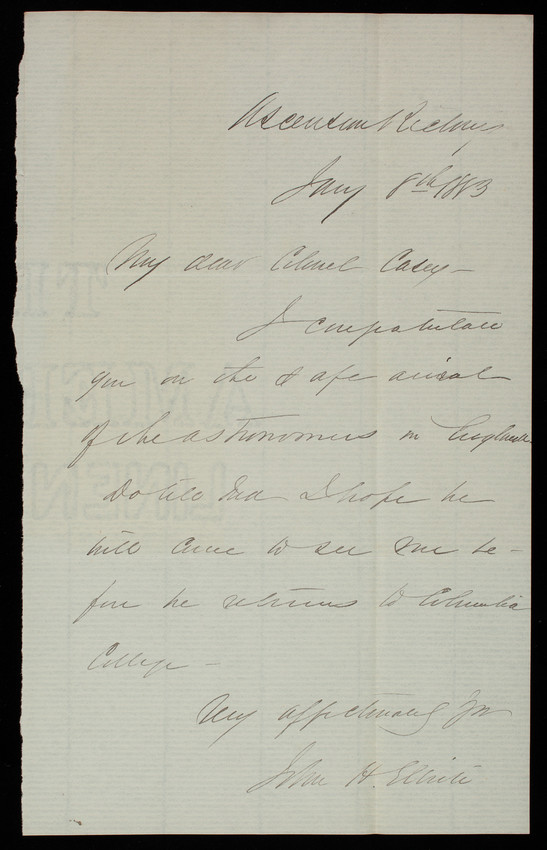 Ascension Rectory
Jany 8th 1883
My dear Colonel Casey -
I congratulate
you on the safe arrival
of the astronomers in England
Do tell Ned I hope he
will come to see me be-
fore he returns to Columbia
College -
Very affectionately yrs
John H. Elliott